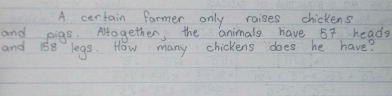 A certain farmer only raises chickens
and pigs. Altogether, the animals have 57 heads
and 158 legs. How many chickens does he have?